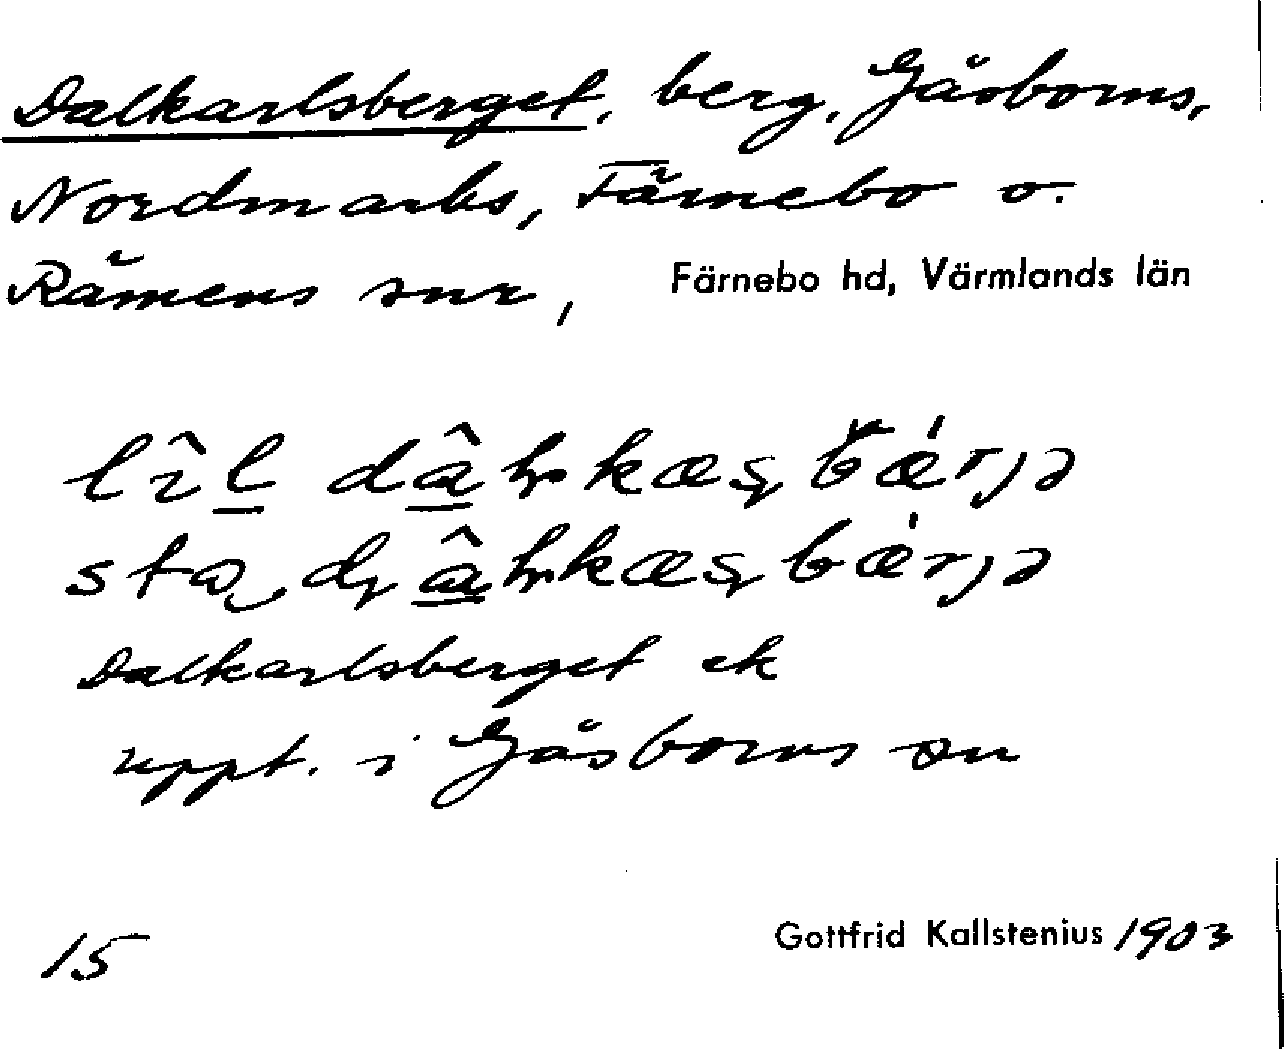 Dalkarlsberget, berg, Gåsborns,
Nordmarks, Färnebo o.
Rämens snr, Färnebo hd, Värmlands län
Dalkarlsberget ek
uppt. i Gåsborns sn
15 Gottfrid Kallstenius 1903